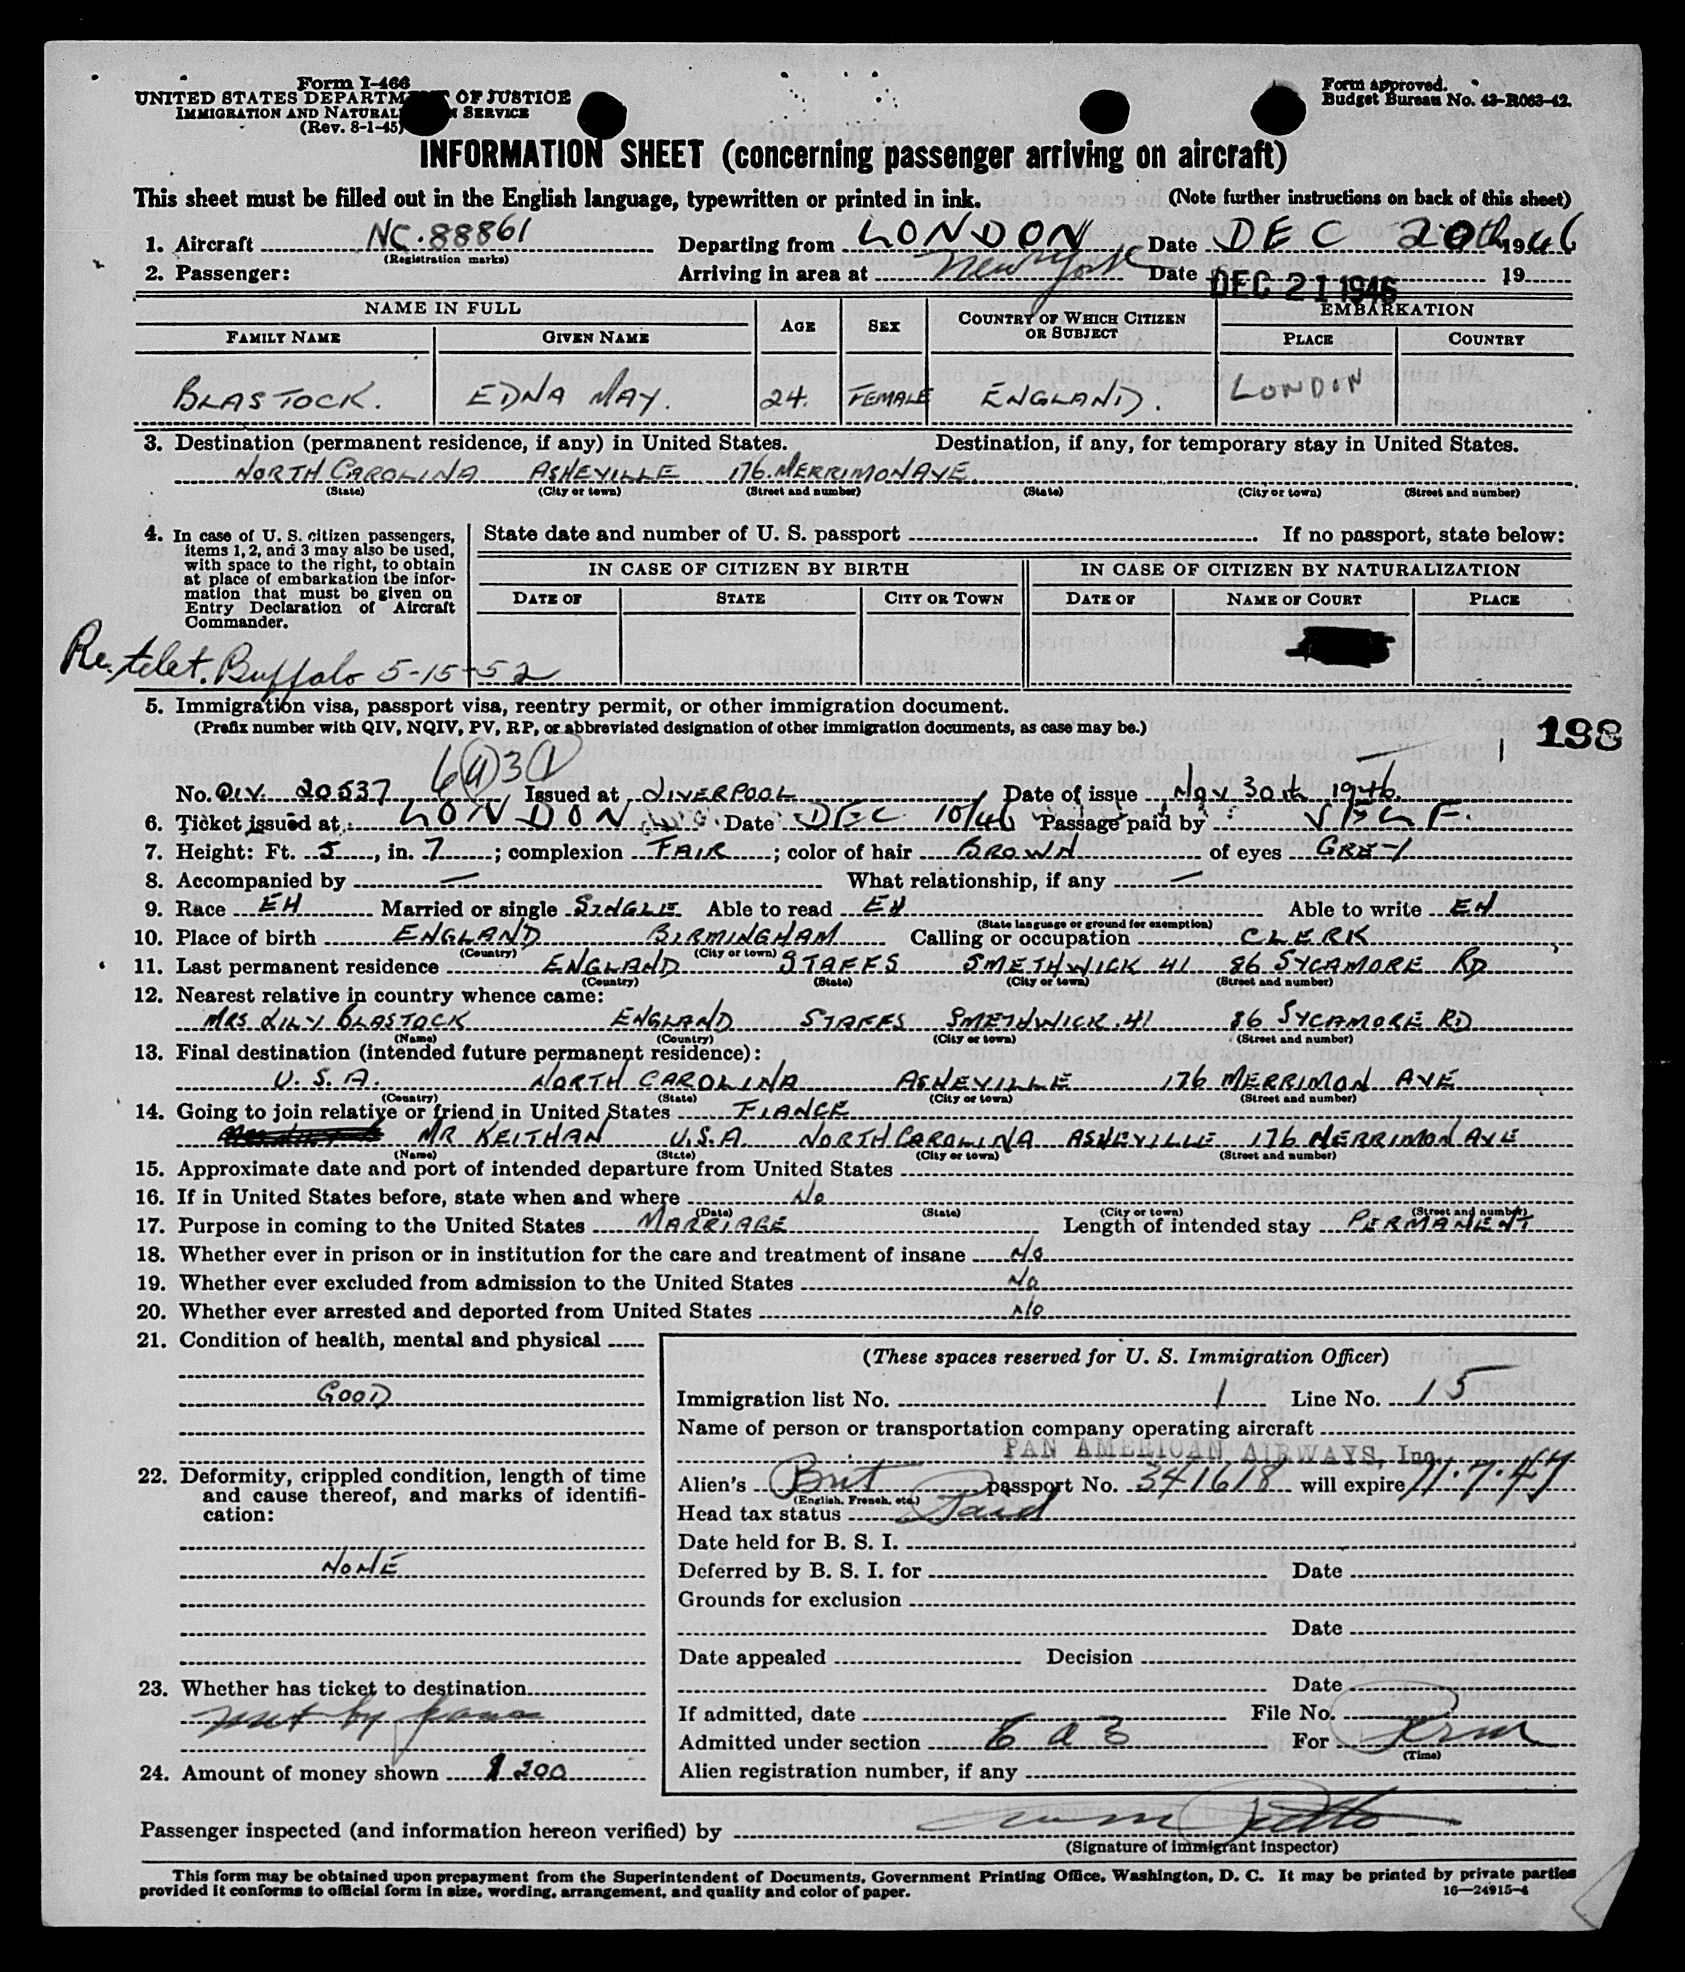 Form I-466
UNITED STATES DEPARTMENT OF JUSTICE
IMMIGRATION AND NATURALIZATION SERVICE
(Rev. 8-1-45)
Form approved.
Budget Bureau No. 43-R063-42.
INFORMATION SHEET (concerning passenger arriving on aircraft)
This sheet must be filled out in the English language, typewritten or printed in ink. (Note further instructions on back of this sheet)
1. Aircraft NC.88861 Departing from LONDON Date DEC 20th 1946
(Registration marks)
2. Passenger: Arriving in area at New York Date DEC 21 1946 19
NAME IN FULL AGE SEX COUNTRY OF WHICH CITIZEN OR SUBJECT EMBARKATION
FAMILY NAME GIVEN NAME PLACE COUNTRY
BLASTOCK. EDNA MAY. 24. FEMALE ENGLAND. LONDON
3. Destination (permanent residence, if any) in United States. Destination, if any, for temporary stay in United States.
NORTH CAROLINA ASHEVILLE 176. MERRIMON AVE.
(State) (City or town) (Street and number) (State) (City or town) (Street and number)
4. In case of U. S. citizen passengers, items 1, 2, and 3 may also be used, with space to the right, to obtain at place of embarkation the information that must be given on Entry Declaration of Aircraft Commander.
State date and number of U. S. passport If no passport, state below:
IN CASE OF CITIZEN BY BIRTH IN CASE OF CITIZEN BY NATURALIZATION
DATE OF STATE CITY OR TOWN DATE OF NAME OF COURT PLACE
Re. telet. Buffalo 5-15-52
5. Immigration visa, passport visa, reentry permit, or other immigration document.
(Prefix number with QIV, NQIV, PV, RP, or abbreviated designation of other immigration documents, as case may be.)
198
6(a)3(1)
No. QIV. 20537 Issued at LIVERPOOL Date of issue Nov 30th 1946.
6. Ticket issued at LONDON Date DEC 10/46 Passage paid by
7. Height: Ft. 5, in. 7; complexion FAIR; color of hair BROWN of eyes GREY
8. Accompanied by — What relationship, if any —
9. Race EH Married or single SINGLE. Able to read EH Able to write EH
(State language or ground for exemption)
10. Place of birth ENGLAND BIRMINGHAM Calling or occupation CLERK
(Country) (City or town)
11. Last permanent residence ENGLAND STAFFS SMETHWICK 41 86 SYCAMORE RD
(Country) (State) (City or town) (Street and number)
12. Nearest relative in country whence came:
MRS LILY BLASTOCK ENGLAND STAFFS SMETHWICK. 41 86 SYCAMORE RD
(Name) (Country) (City or town) (Street and number)
13. Final destination (intended future permanent residence):
U. S. A. NORTH CAROLINA ASHEVILLE 176 MERRIMON AVE
(Country) (State) (City or town) (Street and number)
14. Going to join relative or friend in United States FIANCE
MR KEITHAN U.S.A. NORTH CAROLINA ASHEVILLE 176 MERRIMON AVE
(Name) (State) (City or town) (Street and number)
15. Approximate date and port of intended departure from United States
16. If in United States before, state when and where No
(Date) (State) (City or town) (Street and number)
17. Purpose in coming to the United States MARRIAGE Length of intended stay PERMANENT
18. Whether ever in prison or in institution for the care and treatment of insane No
19. Whether ever excluded from admission to the United States No
20. Whether ever arrested and deported from United States No
21. Condition of health, mental and physical
GOOD
22. Deformity, crippled condition, length of time and cause thereof, and marks of identification:
NONE
23. Whether has ticket to destination
met by fiance
24. Amount of money shown $ 200
(These spaces reserved for U. S. Immigration Officer)
Immigration list No. 1 Line No. 15
Name of person or transportation company operating aircraft
PAN AMERICAN AIRWAYS, Inc.
Alien's Brit passport No. 341618 will expire 11.7.47
(English, French, etc.)
Head tax status Paid
Date held for B. S. I.
Deferred by B. S. I. for Date
Grounds for exclusion
Date
Date appealed Decision
Date
If admitted, date File No.
Admitted under section 6 a 3 For Perm
(Time)
Alien registration number, if any
Passenger inspected (and information hereon verified) by
(Signature of immigrant inspector)
This form may be obtained upon prepayment from the Superintendent of Documents, Government Printing Office, Washington, D. C. It may be printed by private parties
provided it conforms to official form in size, wording, arrangement, and quality and color of paper.
16—24915-4